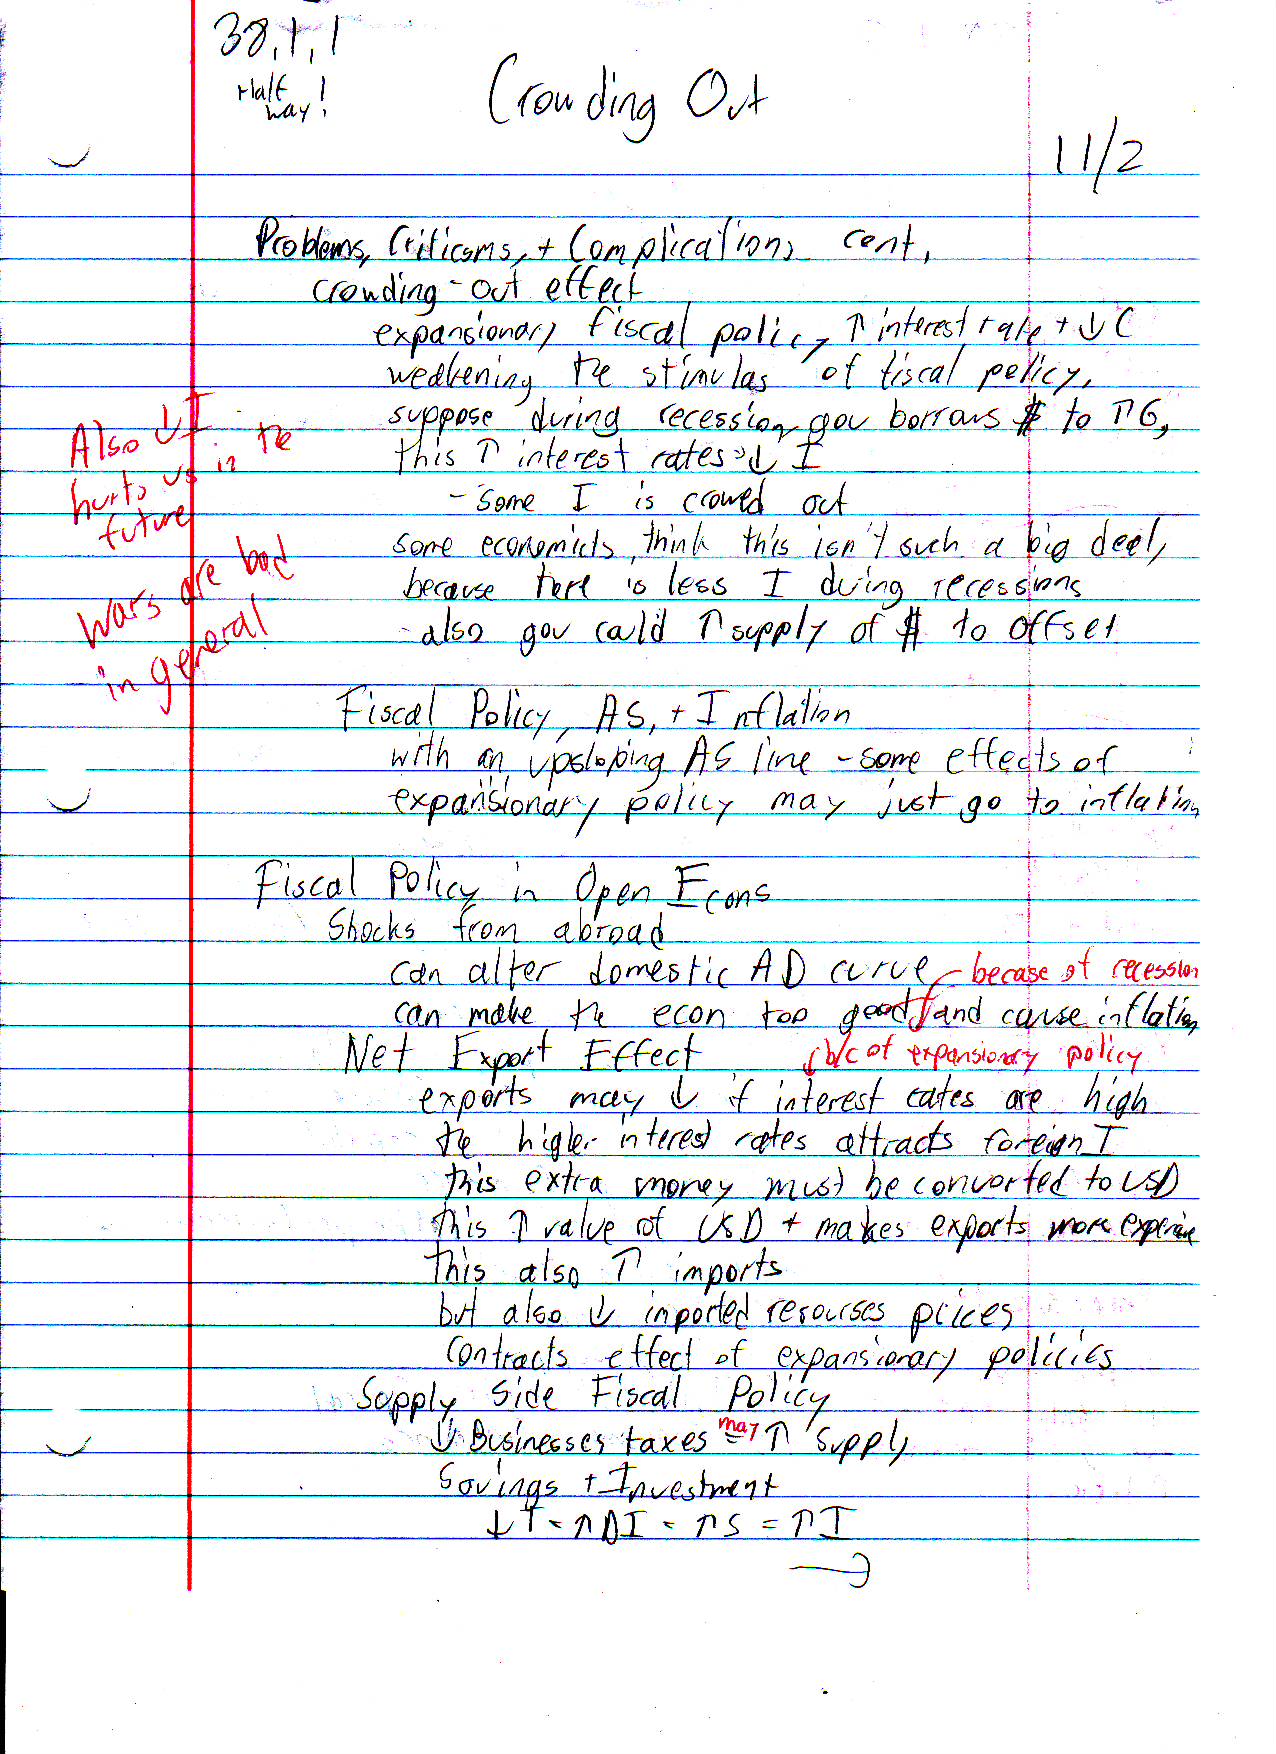 38,1,1
Half
way!
Crowding Out
11/2
Problems, Criticsms, + Complications cont,
crowding-out effect
expansionary fiscal policy ↑ interest rate + ↓ C
weakening the stimulas of fiscal policy,
suppose during recession gov borrows $ to ↑G,
this ↑ interest rates ↓ I
- some I is crowed out
some economicts, think this isn't such a big deel,
because there is less I during recessions
- also gov could ↑ supply of $ to offset
Also ↓ I
hurts us in the
future
Wars are bad
in general
Fiscal Policy, AS, + Inflation
with an upsloping AS line - some effects of
expansionary policy may just go to inflation
Fiscal Policy in Open Econs
Shocks from abroad
can alter domestic AD curve - becase of recession
can make the econ too good and cause inflation
Net Export Effect
↓ b/c of expansionary policy
exports may ↓ if interest rates are high
the higher interest rates attracts foreign I
this extra money must be converted to USD
this ↑ value of USD + makes exports more expensive
This also ↑ imports
but also ↓ imported resourses prices
contracts effect of expansionary policies
Supply Side Fiscal Policy
↓ Businesses taxes = may ↑ supply
Savings + Investment
↓ T = ↑ DI = ↑ S = ↑ I
→